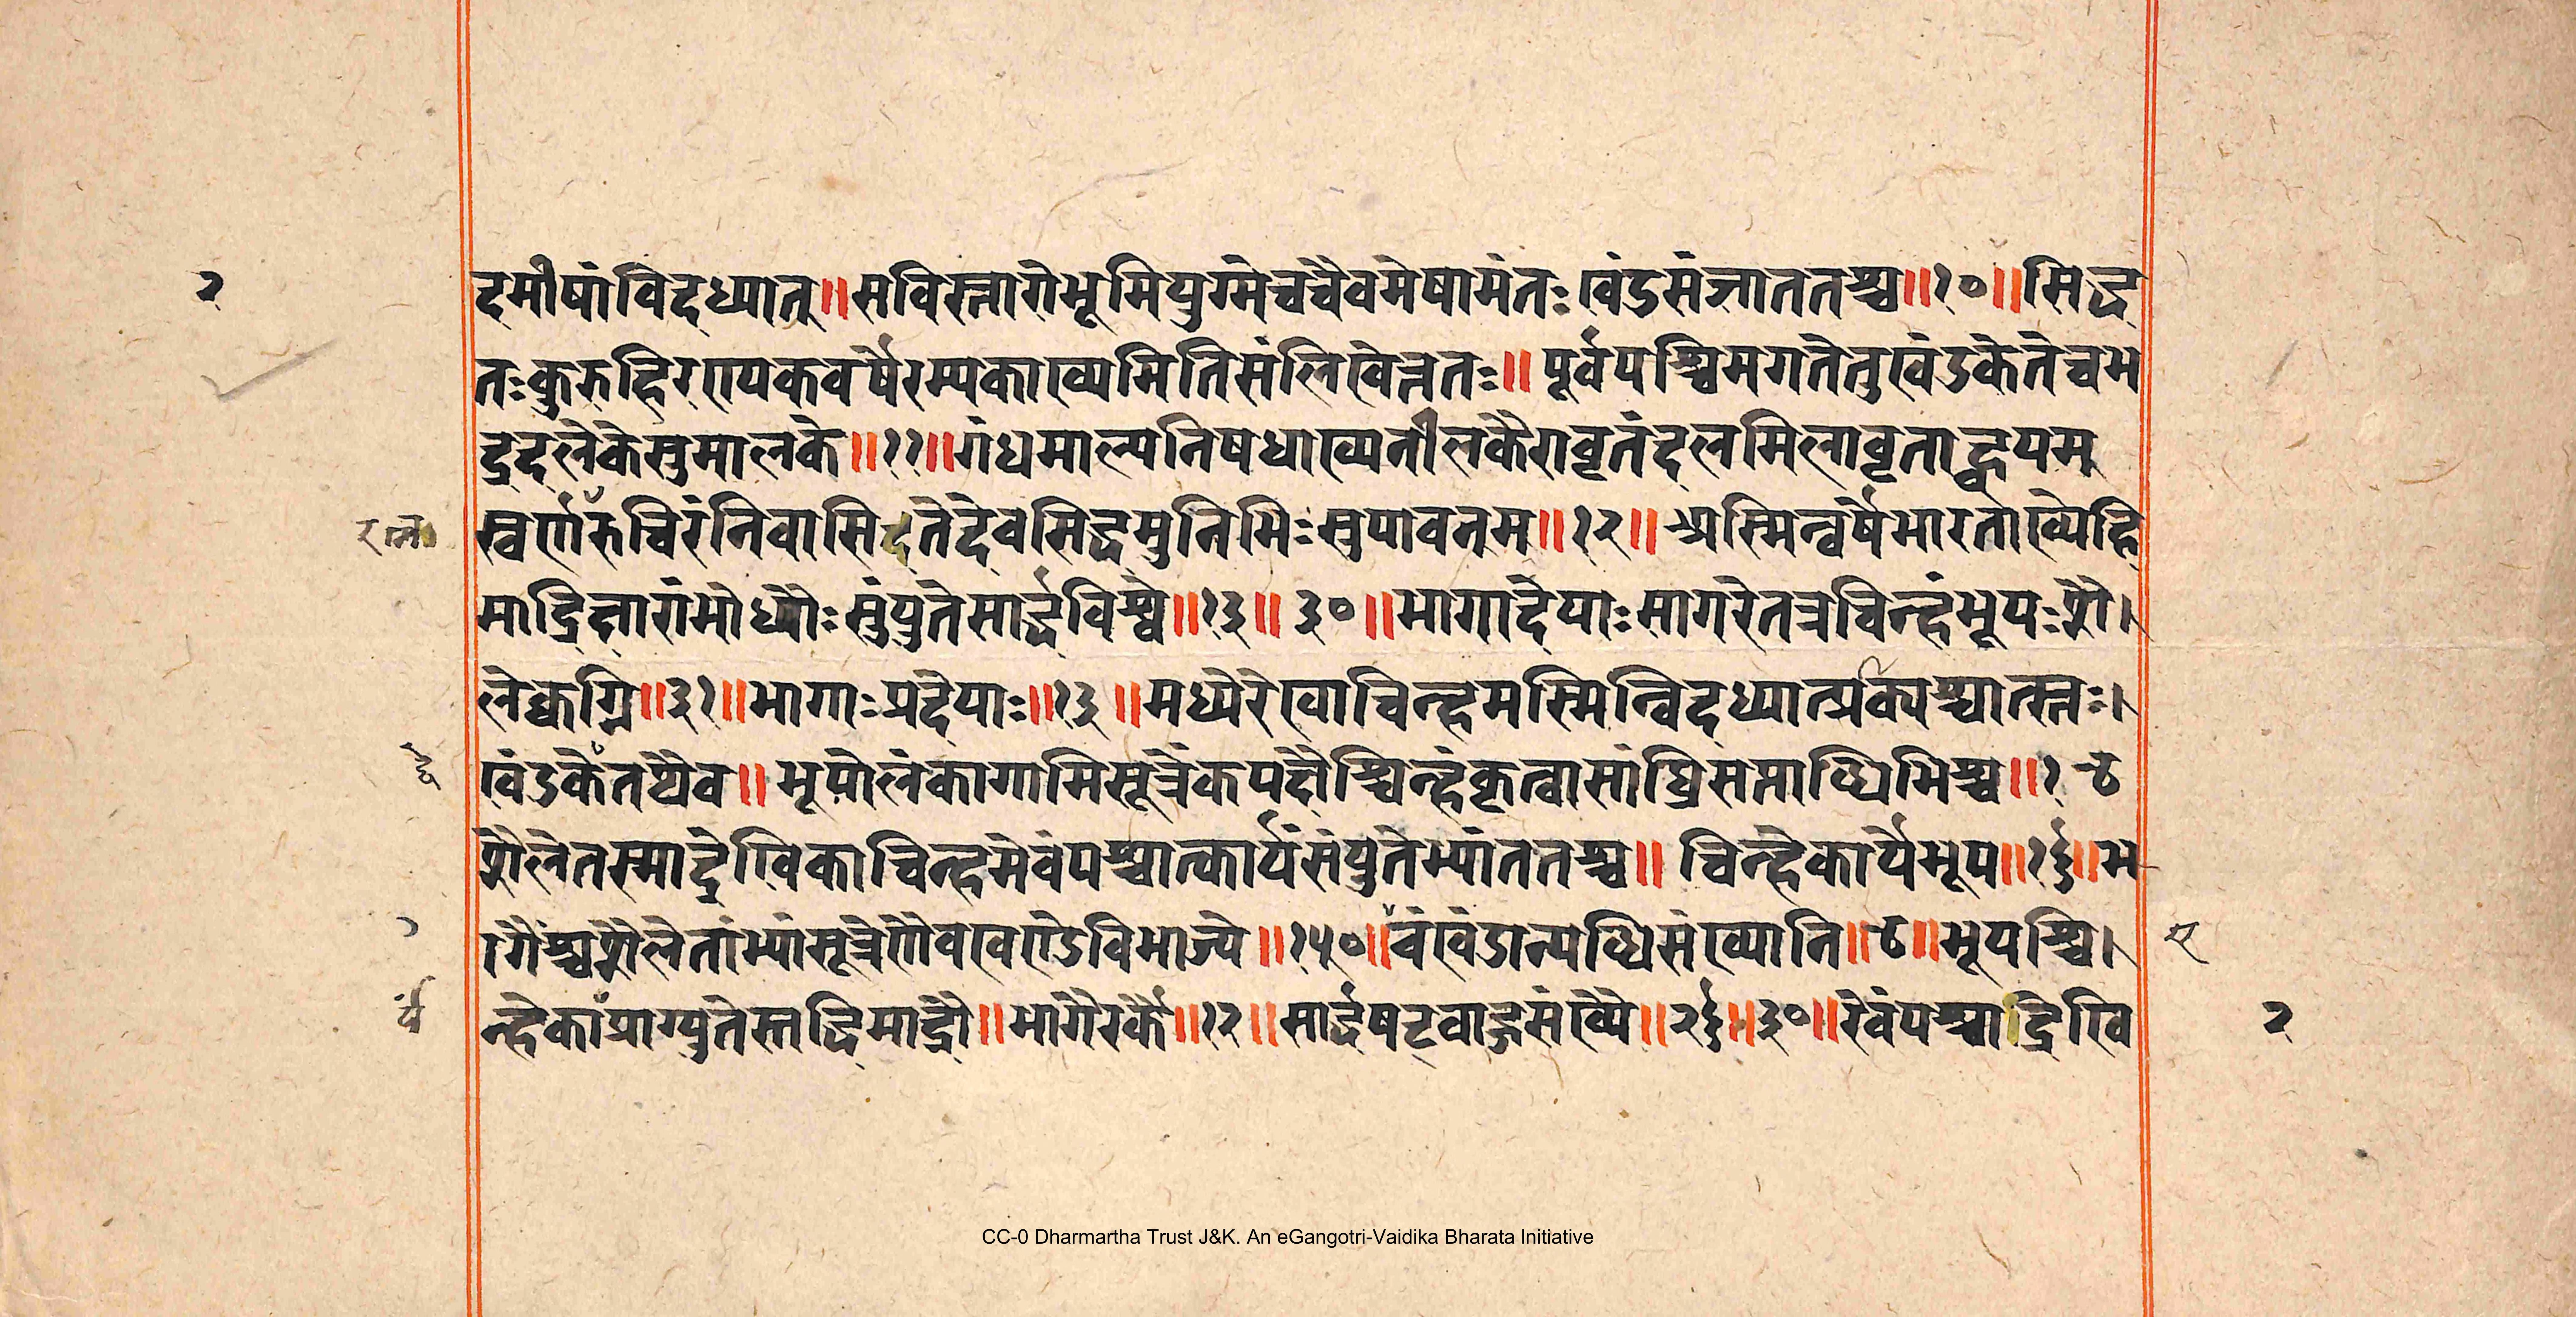 २
दमीषांविदध्यात्॥सविस्तारोभूमियुग्मेचचैवमेषामंतःखंडसंजातत‍तश्च॥१०॥सिद्ध
तःकुरुहिरण्यकवर्षैरम्यकाख्यमितिसंलिखेत्ततः॥पूर्वपश्चिमगतेतुखंडकेतेच्चभ
द्रदलेकेसुमालके॥११॥गंधमाल्यनिषधाख्यनीलकैरावृतंदलमिलावृताद्वयम्
रत्न
स्वर्णरुचिरंनिवासिदतेदेवसिद्धमुनिभिःसुपावनम्॥१२॥अस्मिन्वर्षेभारताख्येहि
माद्रिक्षारांभोध्योःसुंयुतेसार्द्धविश्वे॥१३॥३०॥भागादेयाःसागरेतत्रचिन्हंभूपःशै।
लेक्ष्वग्नि॥३१॥भागाःप्रदेयाः॥१३॥मध्येरेखाचिन्हमस्मिन्विदध्यात्प्रक्यश्चात्स्तः।
खंडकेतथैव॥भूपोलंकागामिसूत्रेकपदौश्चिन्हंकृत्वासांघ्रिसप्ताब्धिभिश्च॥१
शैलेतस्माद्रेखिकाचिन्हमेवंपश्चात्कार्यसंयुतेभ्यांततश्च॥चिन्हेकार्येभूप॥१६॥भ
ागैश्चशैलेतांभ्यांसूत्रेणैवखण्डेविभाज्ये॥१५०॥वंखंडान्यब्धिसंख्यानि॥४॥भूपश्चि।
न्हेकाप्राग्युतेस्तद्धिमाद्रौ॥भागैरर्कै॥१२॥सार्द्धषट्वाङ्गसंख्यै॥२६॥३०॥रेवंपश्चाद्रिखि
२
CC-0 Dharmartha Trust J&K. An eGangotri-Vaidika Bharata Initiative